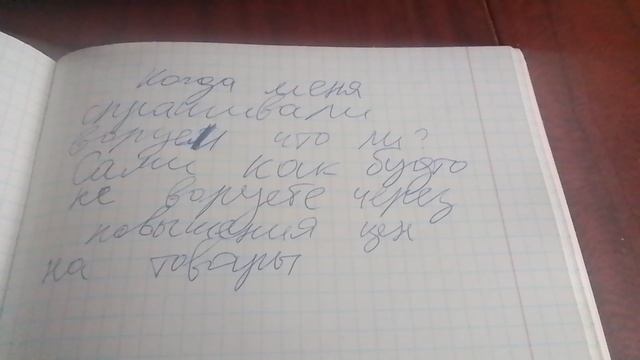 Когда меня
спрашивали
воруем что ли?
Сами как будто
не воруете через
повышения цен
на товары